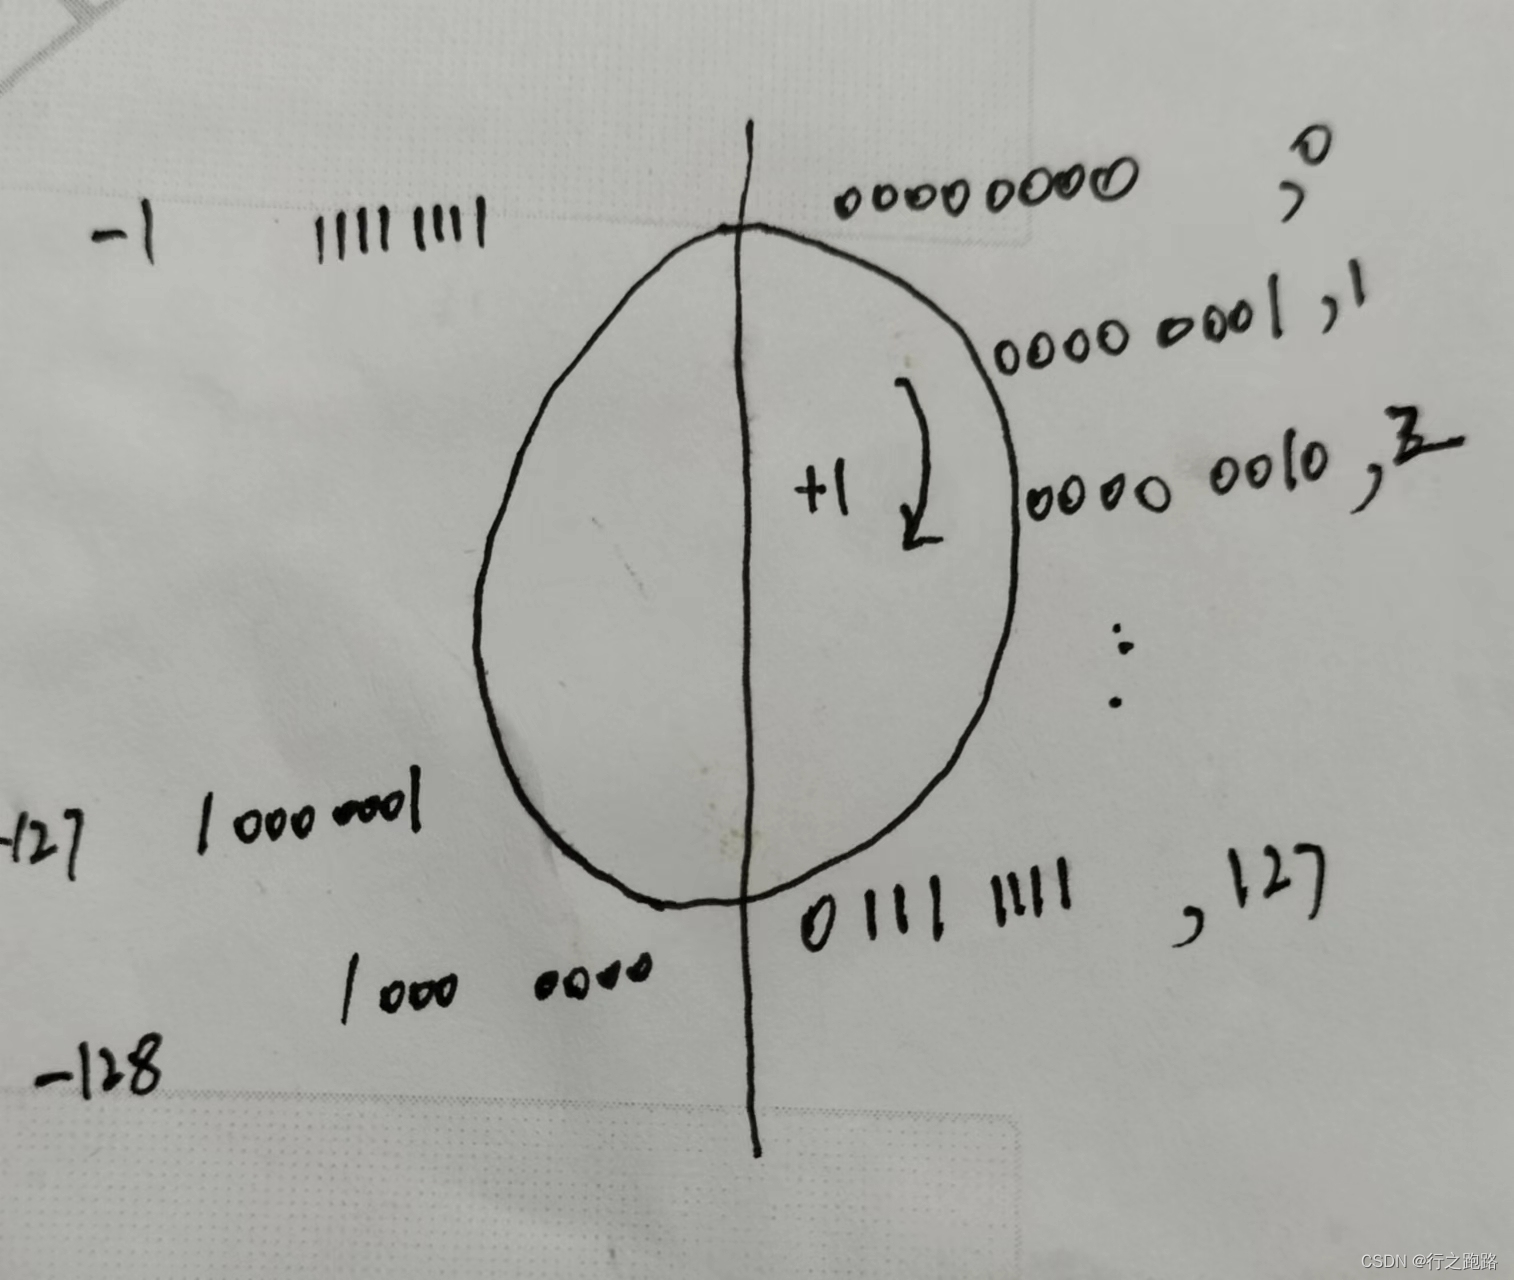 00000000 , 0
-1 1111 1111
0000 0001 , 1
0000 0010 , 2
+1
-127 1000 0001
0111 1111 , 127
1000 0000
-128
CSDN @行之跑路